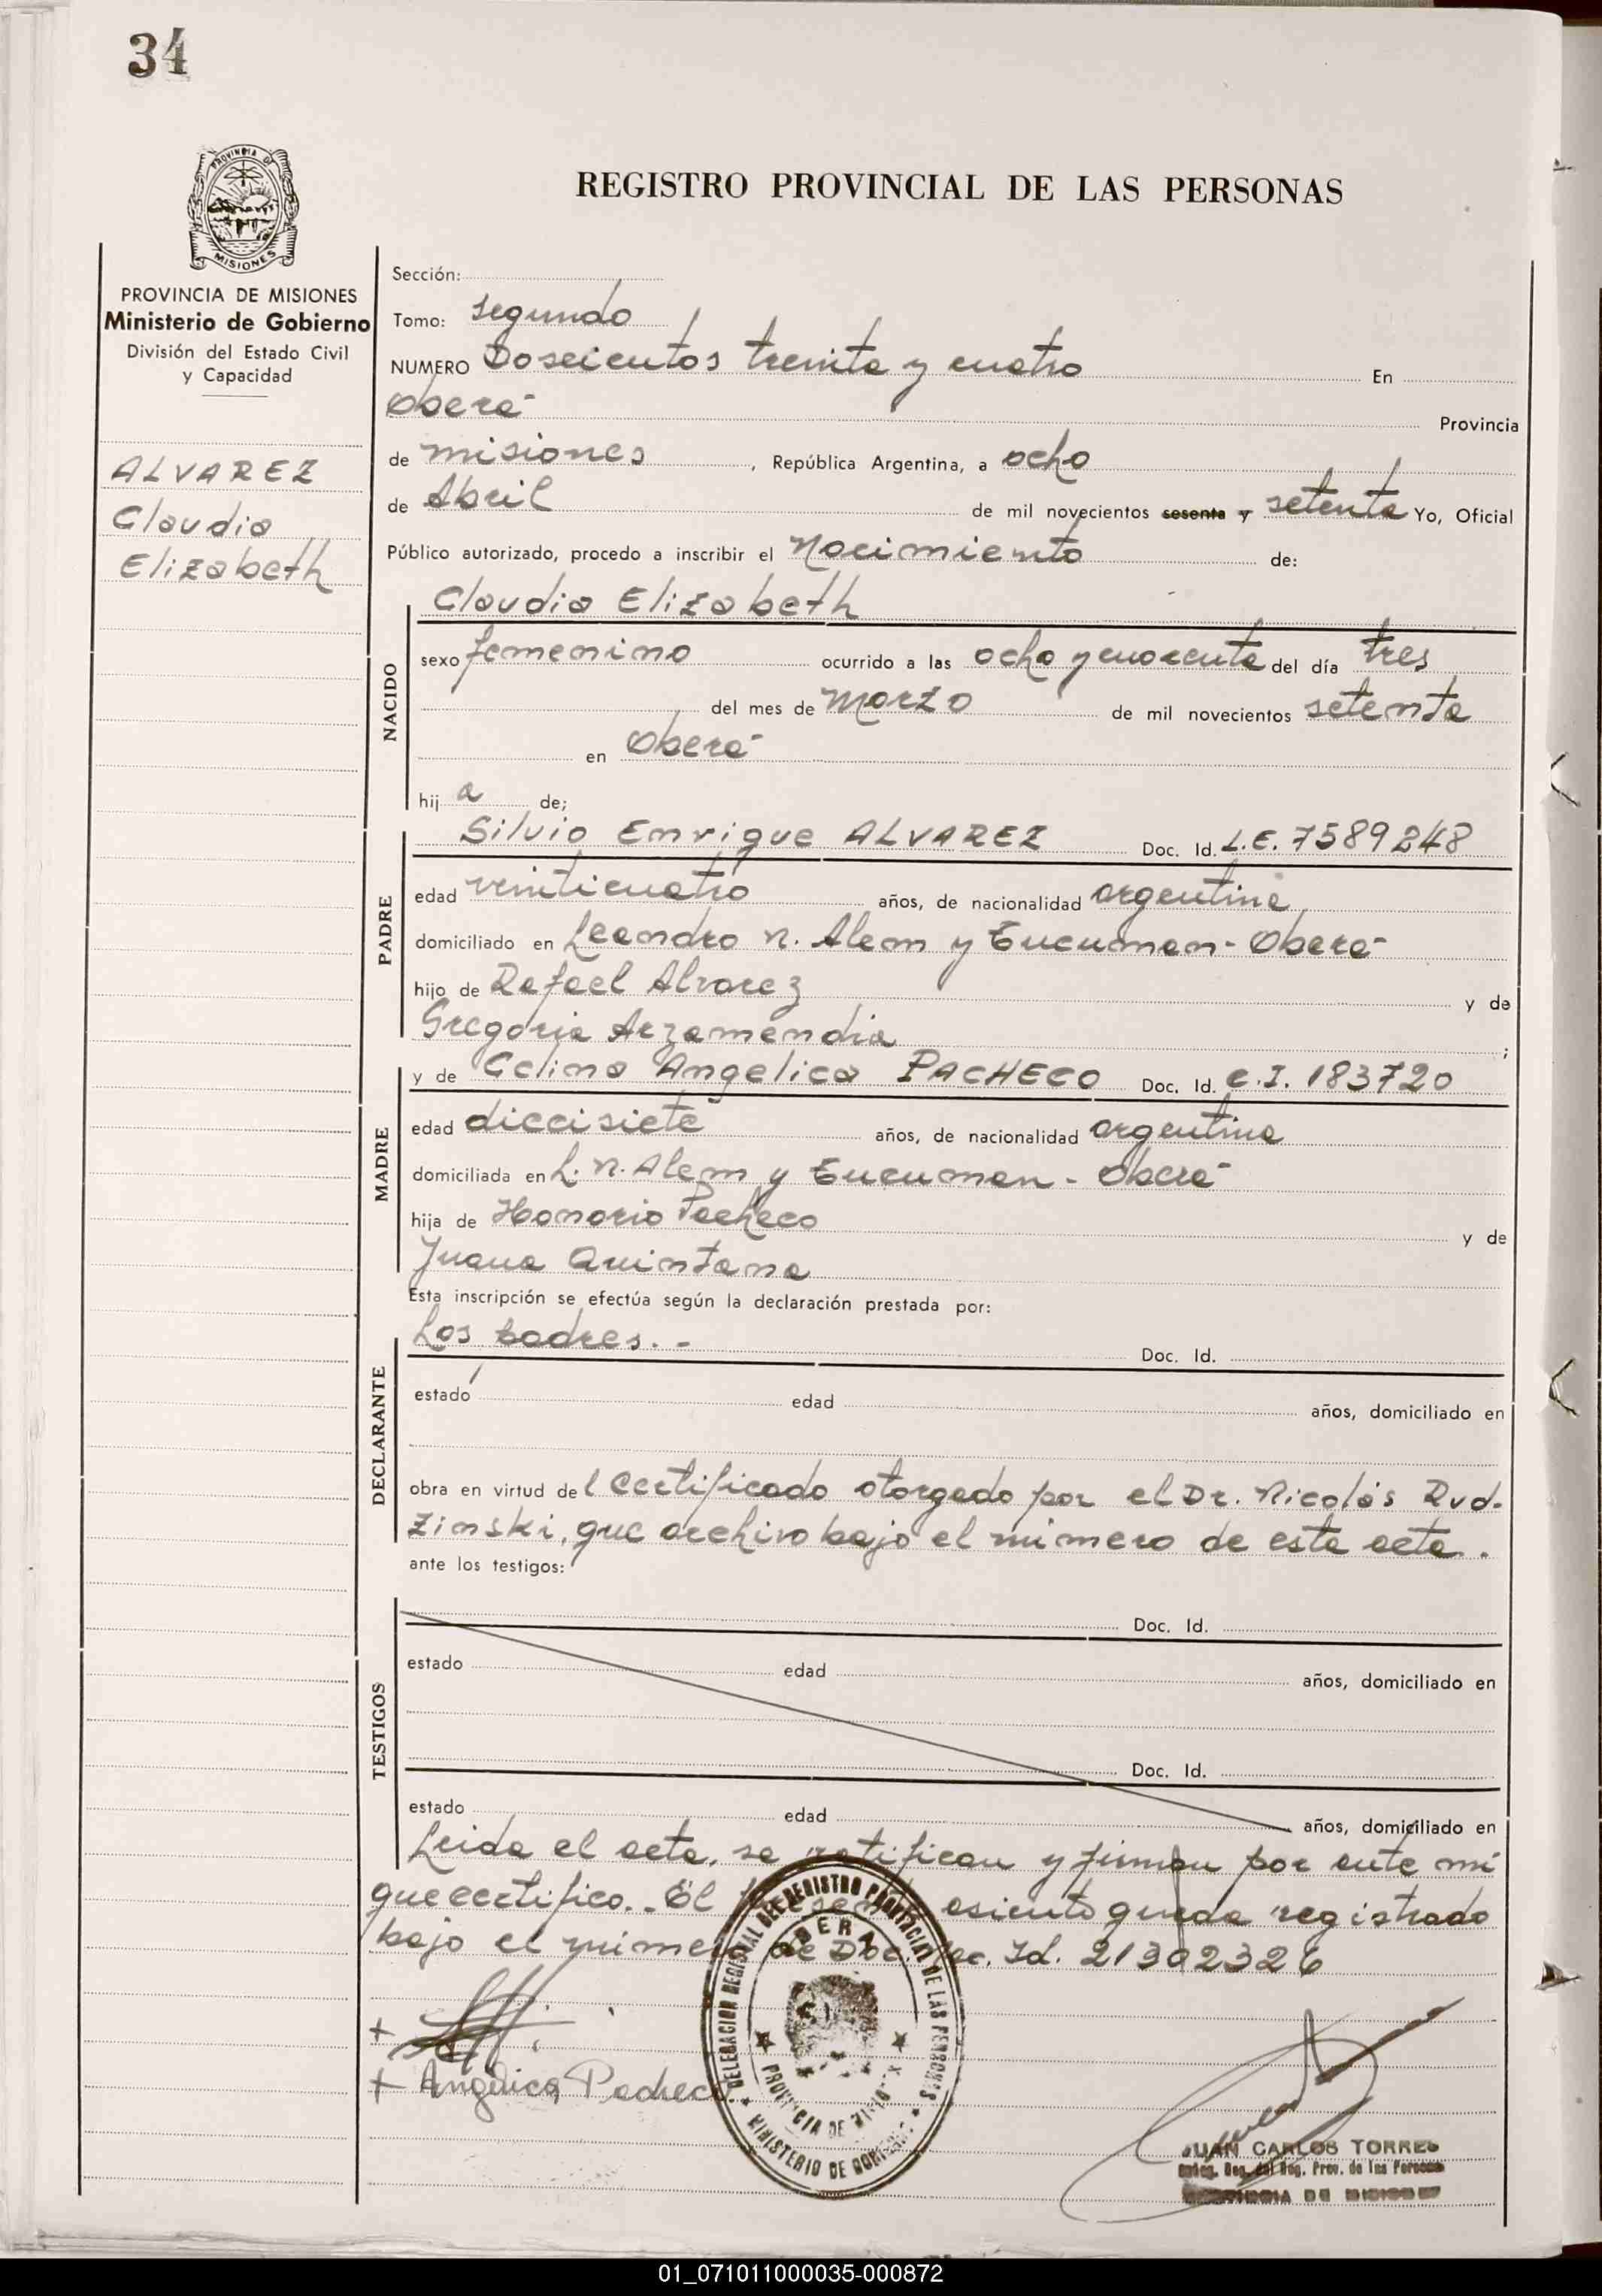 34
PROVINCIA DE
MISIONES
REGISTRO PROVINCIAL DE LAS PERSONAS
PROVINCIA DE MISIONES
Ministerio de Gobierno
División del Estado Civil
y Capacidad
ALVAREZ
Claudia
Elizabeth
Sección:
Tomo: segundo
NUMERO Doscientos treinta y cuatro En
Oberá Provincia
de misiones, República Argentina, a ocho
de Abril de mil novecientos sesenta y setenta Yo, Oficial
Público autorizado, procedo a inscribir el Nacimiento de:
Claudia Elizabeth
NACIDO
sexo femenino ocurrido a las ocho y cuarenta del día tres
del mes de Marzo de mil novecientos setenta
en Oberá
hij a de;
Silvio Enrique ALVAREZ Doc. Id. L.E. 7589248
PADRE
edad veinticuatro años, de nacionalidad argentina
domiciliado en Leandro N. Alem y Tucuman - Oberá
hijo de Rafael Alvarez y de
Gregoria Arzamendia ;
y de Celina Angelica PACHECO Doc. Id. C.I. 183720
MADRE
edad diecisiete años, de nacionalidad argentina
domiciliada en L. N. Alem y Tucuman - Oberá
hija de Honorio Pacheco y de
Juana Quintana
Esta inscripción se efectúa según la declaración prestada por:
Los padres. - Doc. Id.
DECLARANTE
estado edad años, domiciliado en
obra en virtud del certificado otorgado por el Dr. Nicolás Rud-
zinski, que archivo bajo el número de este acta.
ante los testigos:
TESTIGOS
Doc. Id.
estado edad años, domiciliado en
Doc. Id.
estado edad años, domiciliado en
Leida el acta, se ratifican y firman por ante mi
que certifico. - El presente asiento queda registrado
bajo el número de Doc. Id. 21302326
+
+ Angélica Pacheco
DELEGACION REGIONAL DEL REGISTRO PROVINCIAL DE LAS PERSONAS
OBERA
PROVINCIA DE MISIONES
MINISTERIO DE GOBIERNO
JUAN CARLOS TORRES
Deleg. Reg. del Reg. Prov. de las Personas
PROVINCIA DE MISIONES
01_071011000035-000872